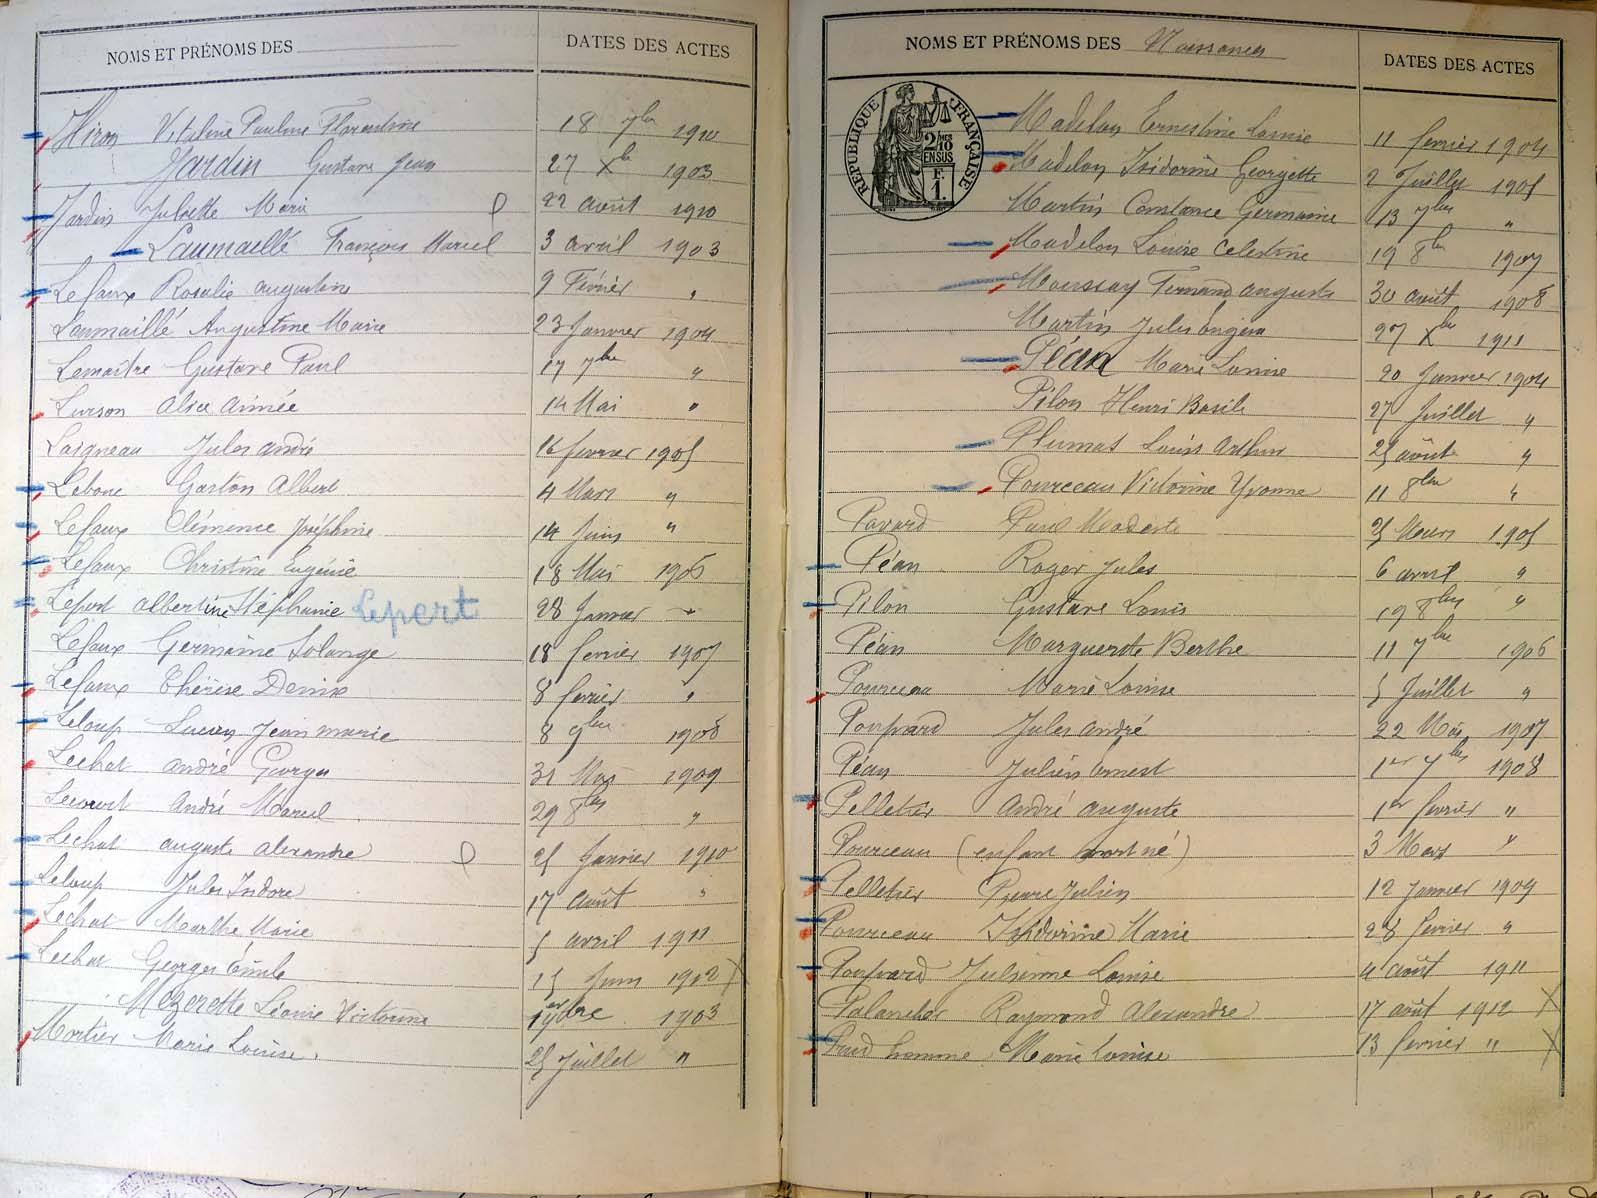 NOMS ET PRÉNOMS DES
DATES DES ACTES
Hiron Vitaline Pauline Florentine 18 7bre 1910
Jardin Gustave Jean 27 Xbre 1903
Jardin Juliette Marie 22 août 1910
Laumaillé François Marcel 3 avril 1903
Lefaux Rosalie augustine 9 Février "
Laumaillé Augustine Marie 23 Janvier 1904
Lemaître Gustave Paul 17 7bre "
Lurson Alice Aimée 14 Mai "
Loigneau Jules André 16 février 1905
Lebouc Gaston Albert 4 Mars "
Lefaux Clémence Joséphine 14 Juin "
Lefaux Christine Eugénie 18 Mai 1906
Lépert Albertine Stéphanie Lepert 28 Janvier "
Lefaux Germaine Solange 18 février 1907
Lefaux Thérèse Denise 8 février "
Leloup Lucien Jean marie 8 9bre 1908
Lechat André Georges 31 Mai 1909
Lecourt André Marcel 29 8bre "
Lechat auguste alexandre 25 Janvier 1910
Leloup Jules Isidore 17 août "
Lechat Marthe Marie 5 avril 1911
Lechat Georges Émile 15 Juin 1912 X
Mezerette Léonie Victorine 1er 9bre 1903
Mortier Marie Louise. 25 Juillet "
NOMS ET PRÉNOMS DES Naissances
DATES DES ACTES
RÉPUBLIQUE FRANÇAISE
2/10 MES
EN SUS
1 F.
Madelon Ernestine Louise 11 février 1904
Madelon Isidorine Georgette 2 Juillet 1905
Martin Constance Germaine 13 7bre "
Madelon Louise Celestine 19 8bre 1907
Moussay Fernand auguste 30 août 1908
Martin Jules Eugène 27 Xbre 1911
Péan Marie Louise 20 Janvier 1904
Pilon Henri Basile 27 Juillet "
Plumas Louis Arthur 25 août "
Pourceau Victorine Yvonne 11 8bre "
Pavard Paul Modeste 25 Mars 1905
Péan Roger Jules 6 avril "
Pilon Gustave Louis 19 8bre "
Péan Marguerite Berthe 11 7bre 1906
Pourceau Marie Louise 5 Juillet "
Poupard Jules André 22 Mai 1907
Péan Julien Ernest 1er 7bre 1908
Pelletier André Auguste 1er février "
Pourceau (enfant mort né) 3 Mars "
Pelletier Pierre Julien 12 Janvier 1909
Pourceau Isidorine Marie 28 février "
Poupard Julienne Louise 4 août 1911
Palancher Raymond Alexandre 17 août 1912 X
Prud'homme Marie Louise 13 février " X